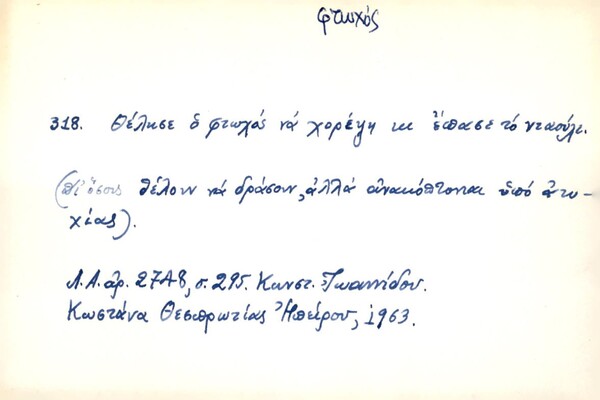 φτωχός
318. Θέλησε ὁ φτωχός νά χορέψη κι ἔσπασε τό νταούλι.
(Δι' ὅσους θέλουν νά δράσουν, ἀλλά ἀνακόπτονται ὑπό ἀτυ-
χίας).
Λ.Α. ἀρ. 2748, σ. 295. Κωνστ. Ἰωαννίδου.
Κωστάνα Θεσπρωτίας Ἠπείρου, 1963.